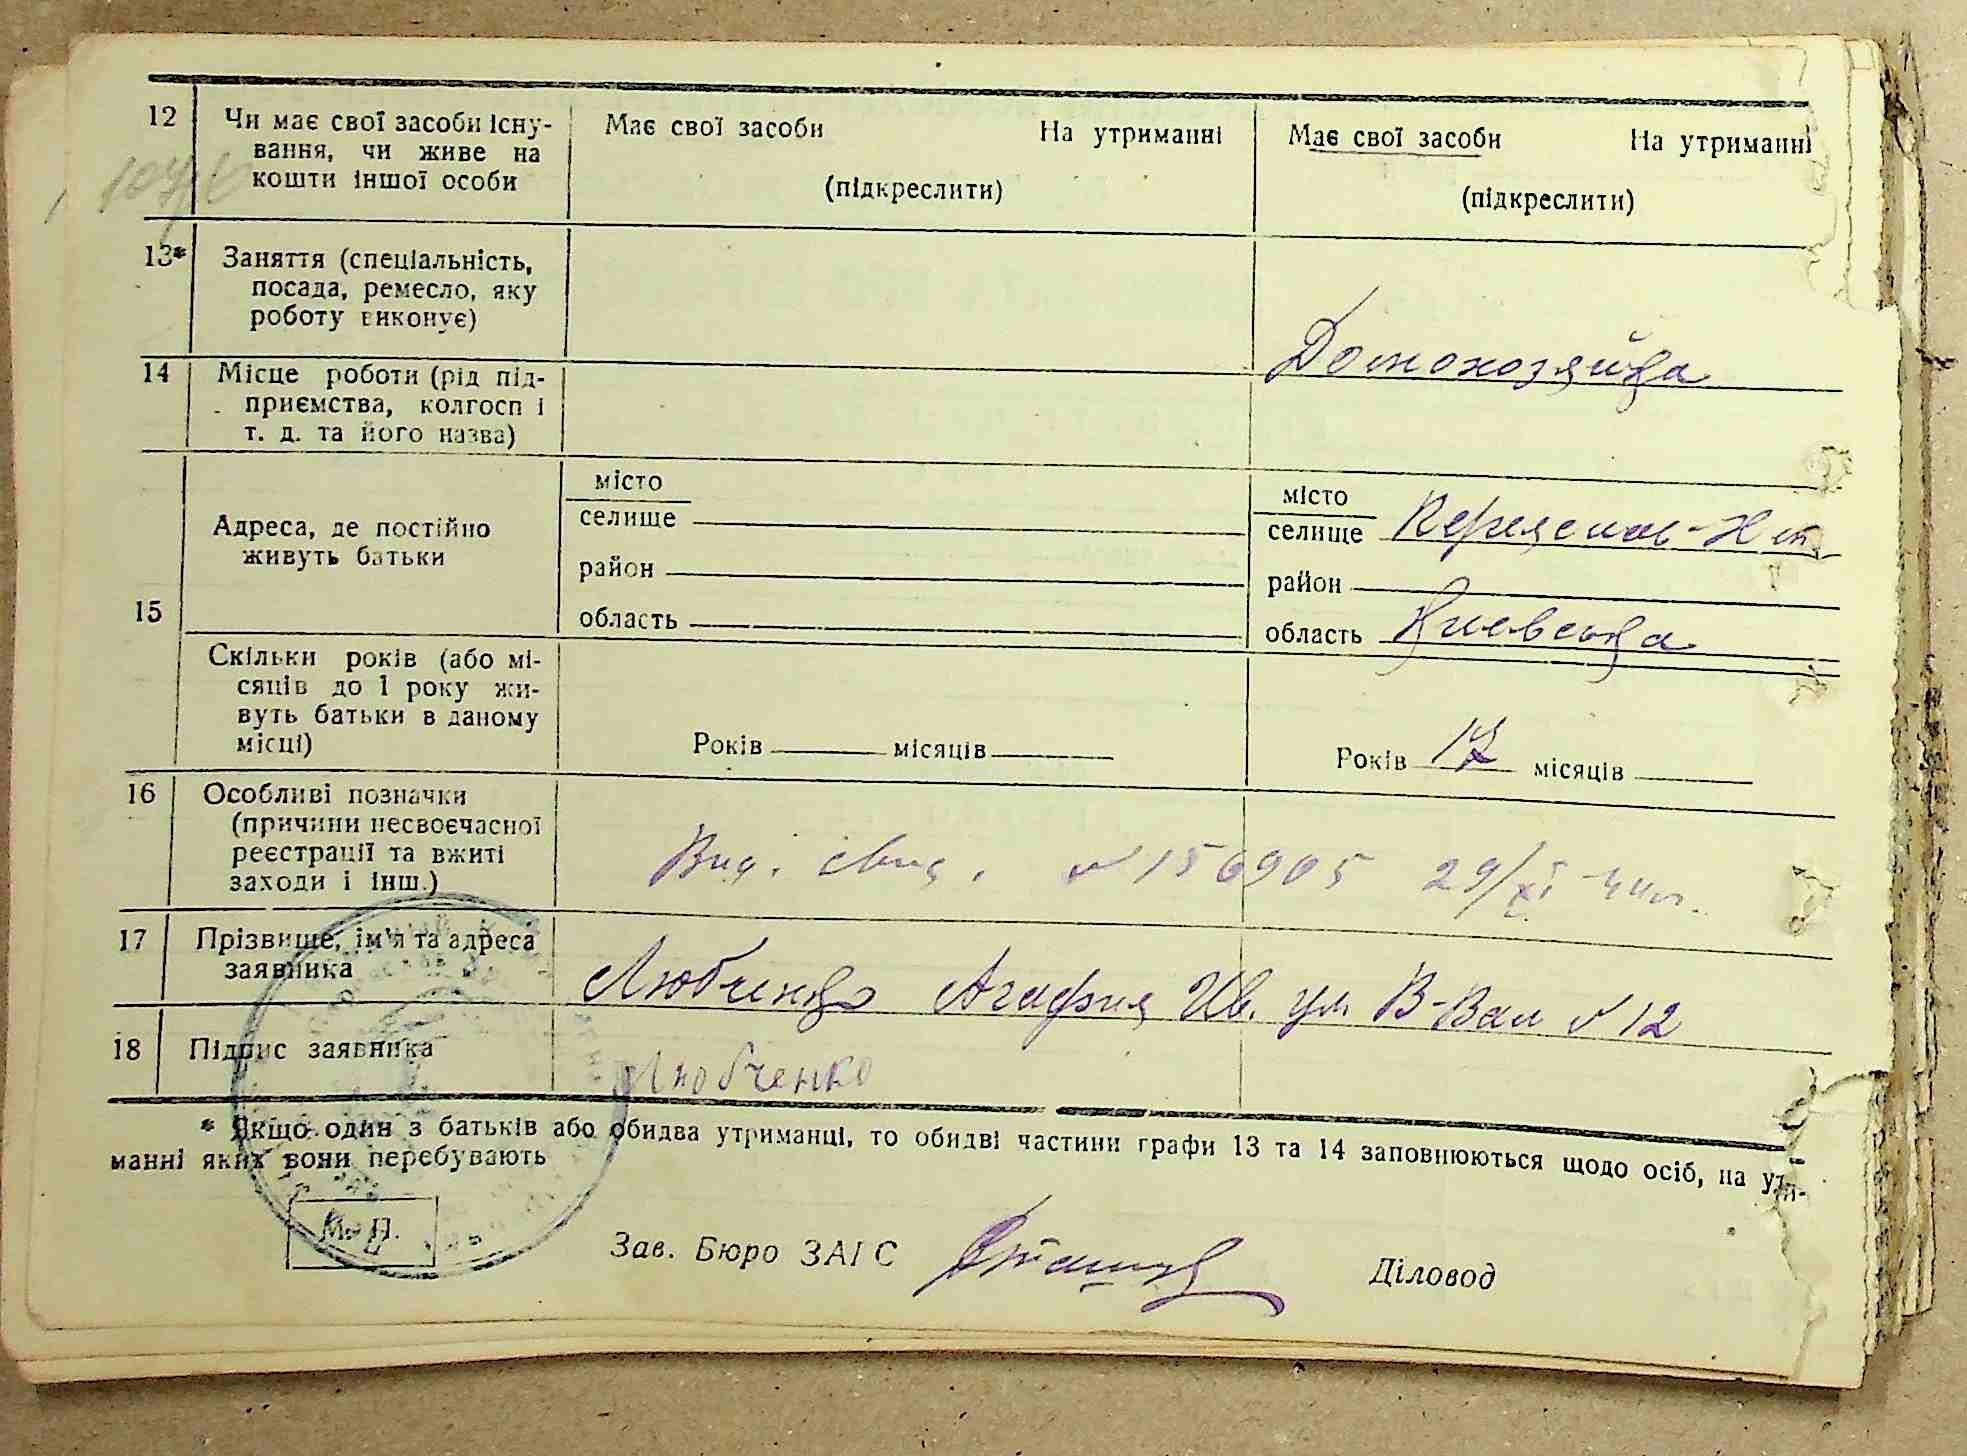 12
Чи має свої засоби існу-
вання, чи живе на
кошти іншої особи
Має свої засоби На утриманні
(підкреслити)
Має свої засоби На утриманні
(підкреслити)
13*
Заняття (спеціальність,
посада, ремесло, яку
роботу виконує)
Домохозяйка
14
Місце роботи (рід під-
приємства, колгосп і
т. д. та його назва)
15
Адреса, де постійно
живуть батьки
місто
селище
район
область
місто
селище Переяслав-Хм.
район
область Киевська
Скільки років (або мі-
сяців до 1 року жи-
вуть батьки в даному
місці)
Років місяців
Років 17 місяців
16
Особливі позначки
(причини несвоєчасної
реєстрації та вжиті
заходи і інш.)
Вид. свид. № 156905 29/XI 44 г.
17
Прізвище, ім'я та адреса
заявника
Любченко Агафия Ив. ул. В-Вал № 12
18
Підпис заявника
Любченко
* Якщо один з батьків або обидва утриманці, то обидві частини графи 13 та 14 заповнюються щодо осіб, на утри-
манні яких вони перебувають
М. П.
Зав. Бюро ЗАГС
Діловод